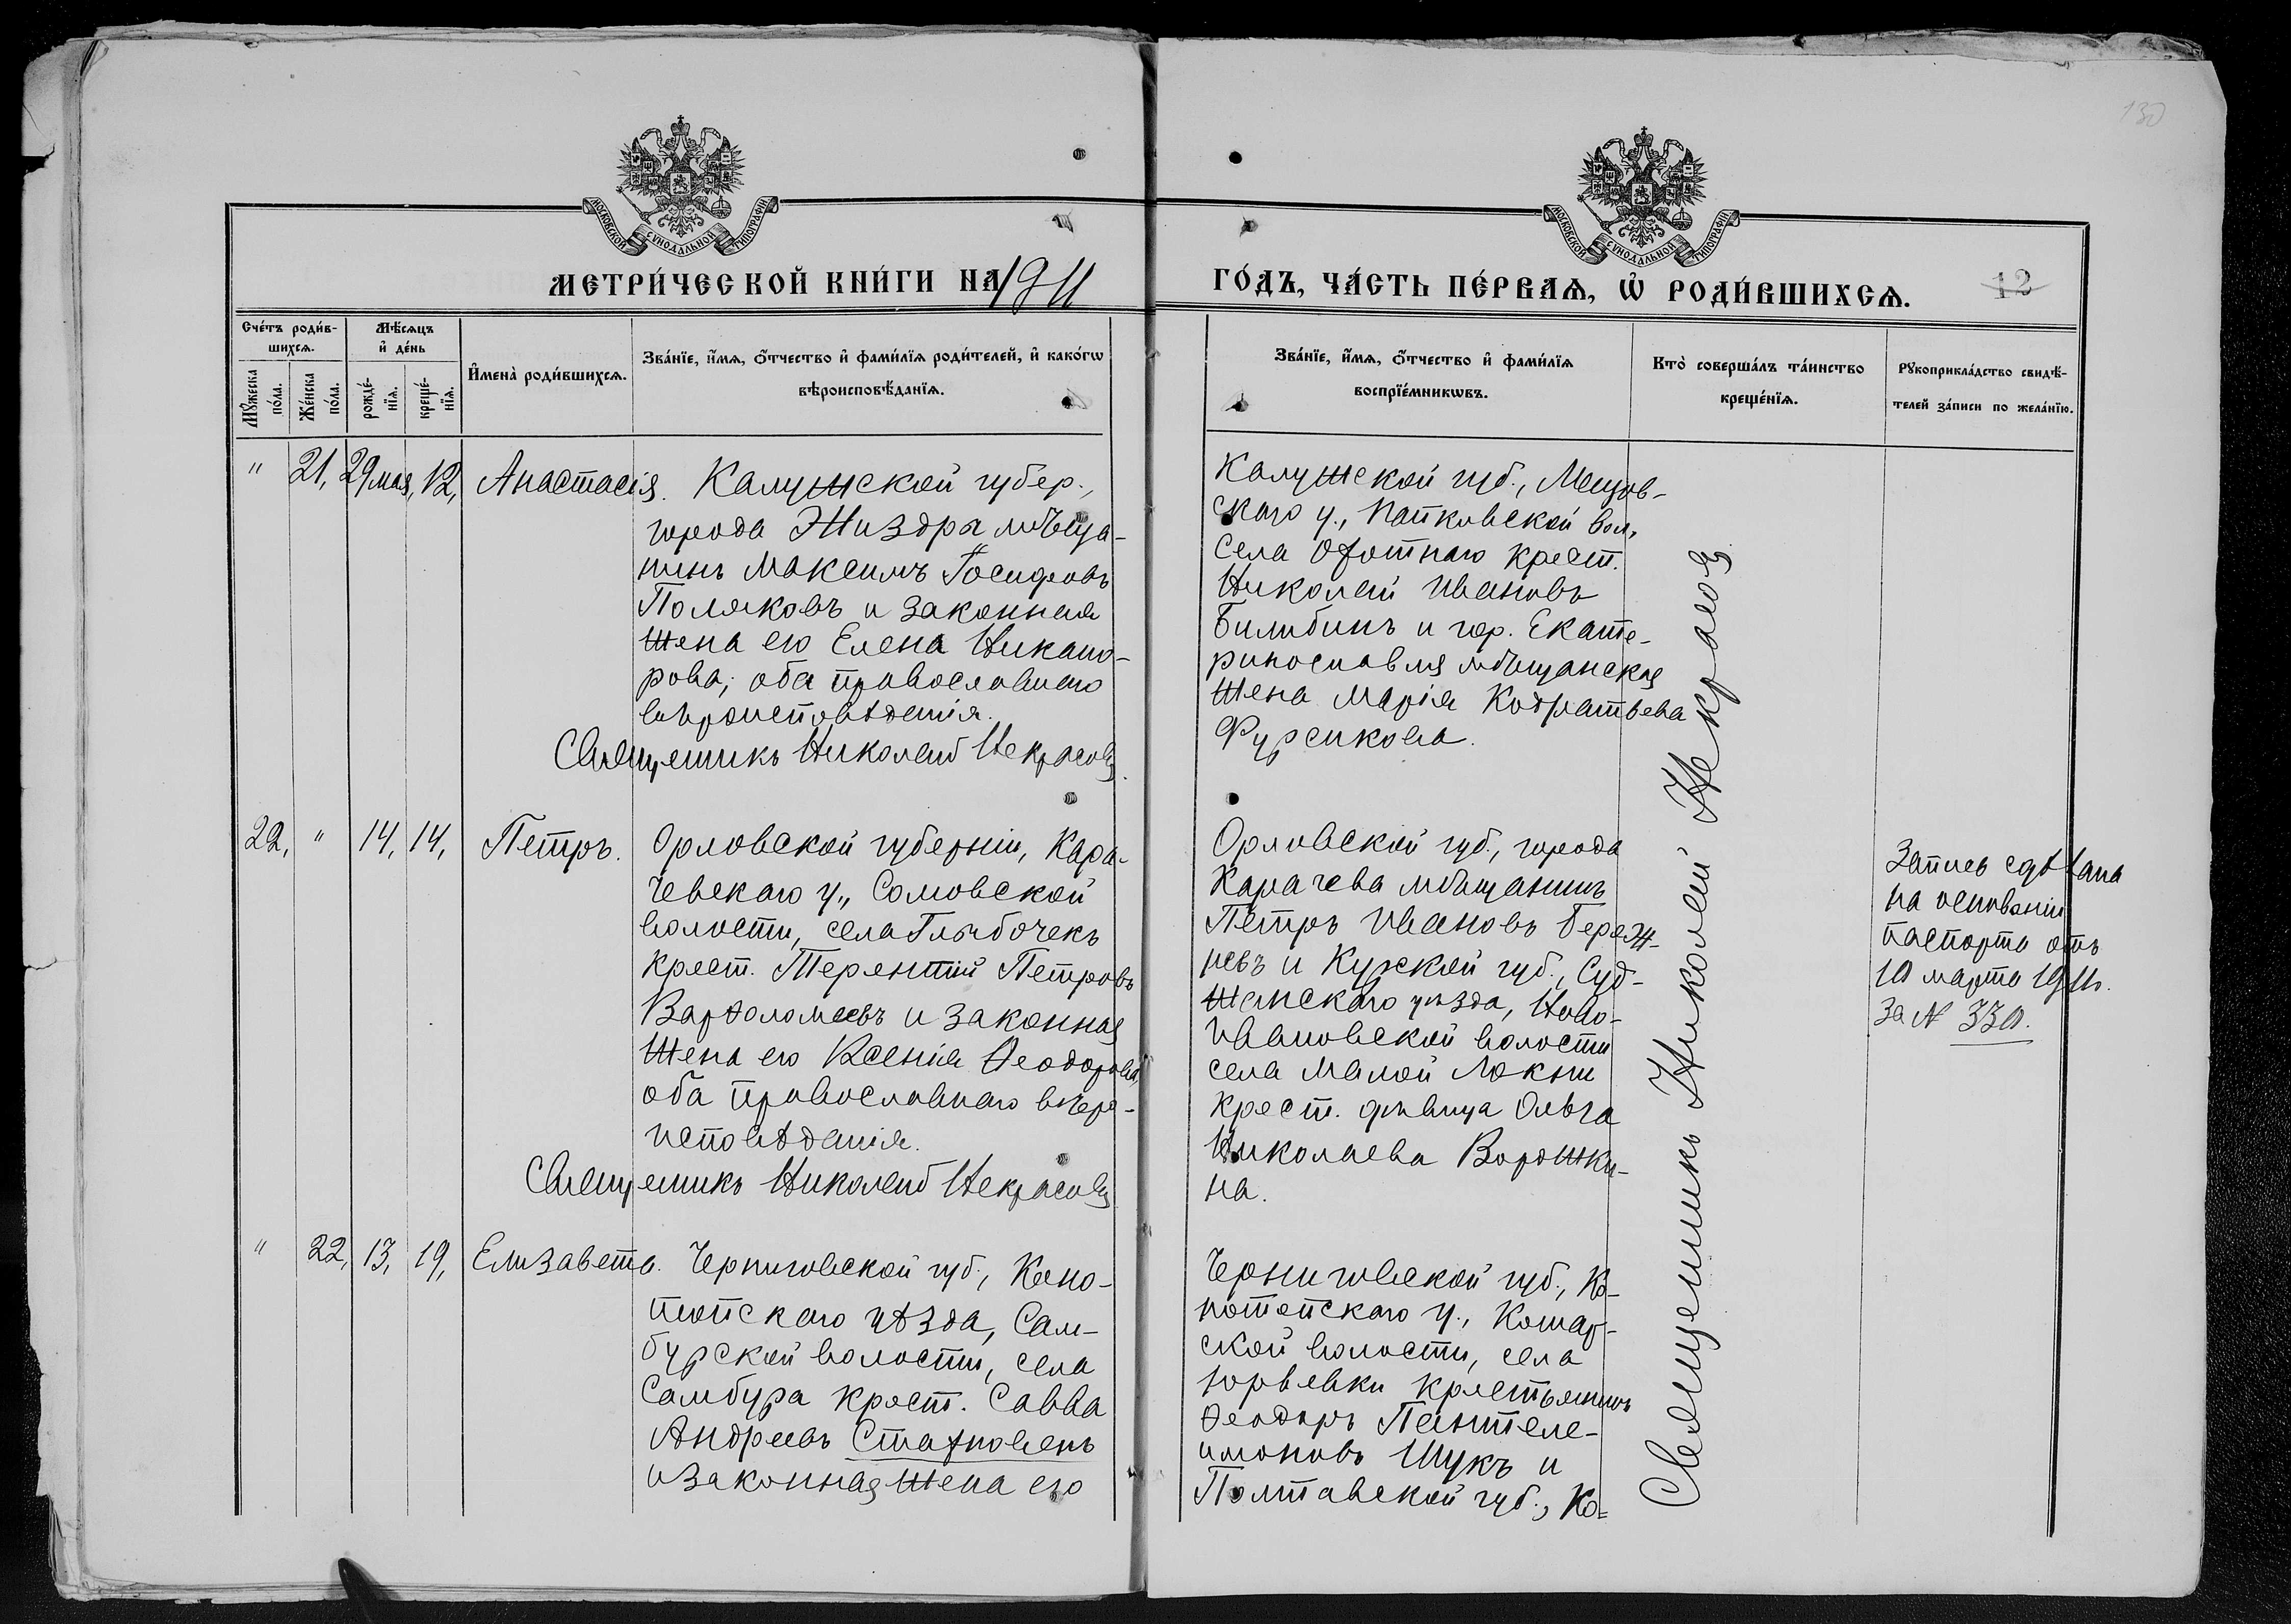 130
МОСКОВСКОЙ СѴНОДАЛЬНОЙ ТИПОГРАФІИ
МОСКОВСКОЙ СѴНОДАЛЬНОЙ ТИПОГРАФІИ
МЕТРИ́ЧЕСКОЙ КНИ́ГИ НА 1911
ГО́ДЪ, ЧА́СТЬ ПЕ́РВАѦ, Ѡ҆ РОДИ́ВШИХСѦ.
12
Сче́тъ роди́в-
шихсѧ.
Мꙋ́жеска по́ла.
Же́нска по́ла.
Мѣ́сѧцъ
и҆ де́нь
рожде́-
нїѧ.
креще́-
нїѧ.
И҆мена̀ роди́вшихсѧ.
Зва́нїе, и҆́мѧ, о҆́тчество и҆ фами́лїѧ роди́телей, и҆ како́гѡ
вѣроисповѣ́данїѧ.
Зва́нїе, и҆́мѧ, о҆́тчество и҆ фами́лїѧ
воспрїе́мникѡвъ.
Кто̀ соверша́лъ та́инство
креще́нїѧ.
Рꙋкоприкла́дство свидѣ́-
телей за́писи по жела́нїю.
" 21, 29 мая, 12, Анастасія.
Калужской губер.,
города Жиздра мѣща-
нинъ Максимъ Іосифовъ
Поляковъ и законная
жена его Елена Никано-
рова; оба православнаго
вѣроисповѣданія.
Священникъ Николай Некрасовъ.
Калужской губ., Мещов-
скаго у., Попковской вол,
села Охотнаго крест.
Николай Ивановъ
Билибинъ и гор. Екате-
ринославля мѣщанская
жена Марія Кодратьева
Фурсикова.
22, " 14, 14, Петръ.
Орловской губерніи, Кара-
чевскаго у., Сомовской
волости, села Глыбочекъ
крест. Терентій Петровъ
Варѳоломеевъ и законная
жена его Ксенія Ѳеодорова,
оба православнаго вѣро-
исповѣданія.
Священникъ Николай Некрасовъ
Орловской губ., города
Карачева мѣщанинъ
Петръ Ивановъ Береж-
невъ и Курской губ., Суд-
жанскаго уѣзда, Ново-
Ивановской волости
села Малой Локни
крест. дѣвица Ольга
Николаева Ворожки-
на.
Запись сдѣлана
на основаніи
паспорта отъ
10 марта 1911г.
за № 330.
" 22, 13, 19, Елизавета.
Черниговской губ., Коно-
топскаго уѣзда, Сам-
бурской волости, села
Самбура крест. Савва
Андреевъ Стахновень
и законная жена его
Черниговской губ., Ко-
нотопскаго у., Кошар-
ской волости, села
Юрьевки крестьянинъ
Ѳеодоръ Пантеле-
имоновъ Шукъ и
Полтавской губ., Ко=
Священникъ Николай Некрасовъ